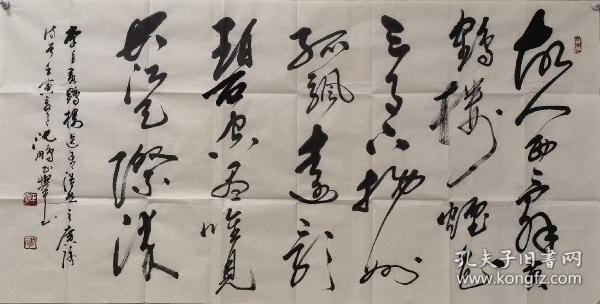 故人西辞黄
鹤楼烟花
三月下扬州
孤帆远影
碧空尽唯见
长江天际流
李白黄鹤楼送孟浩然之广陵
诗一首壬寅夏月沈鹏书
孔夫子旧书网